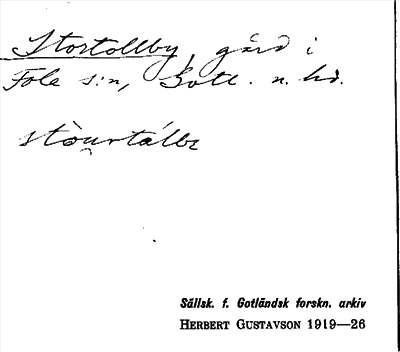 Stortollby, gård i
Fole s:n, Gotl. n. hd.
stòu̯rtálbɛ
Sällsk. f. Gotländsk forskn. arkiv
HERBERT GUSTAVSON 1919—26